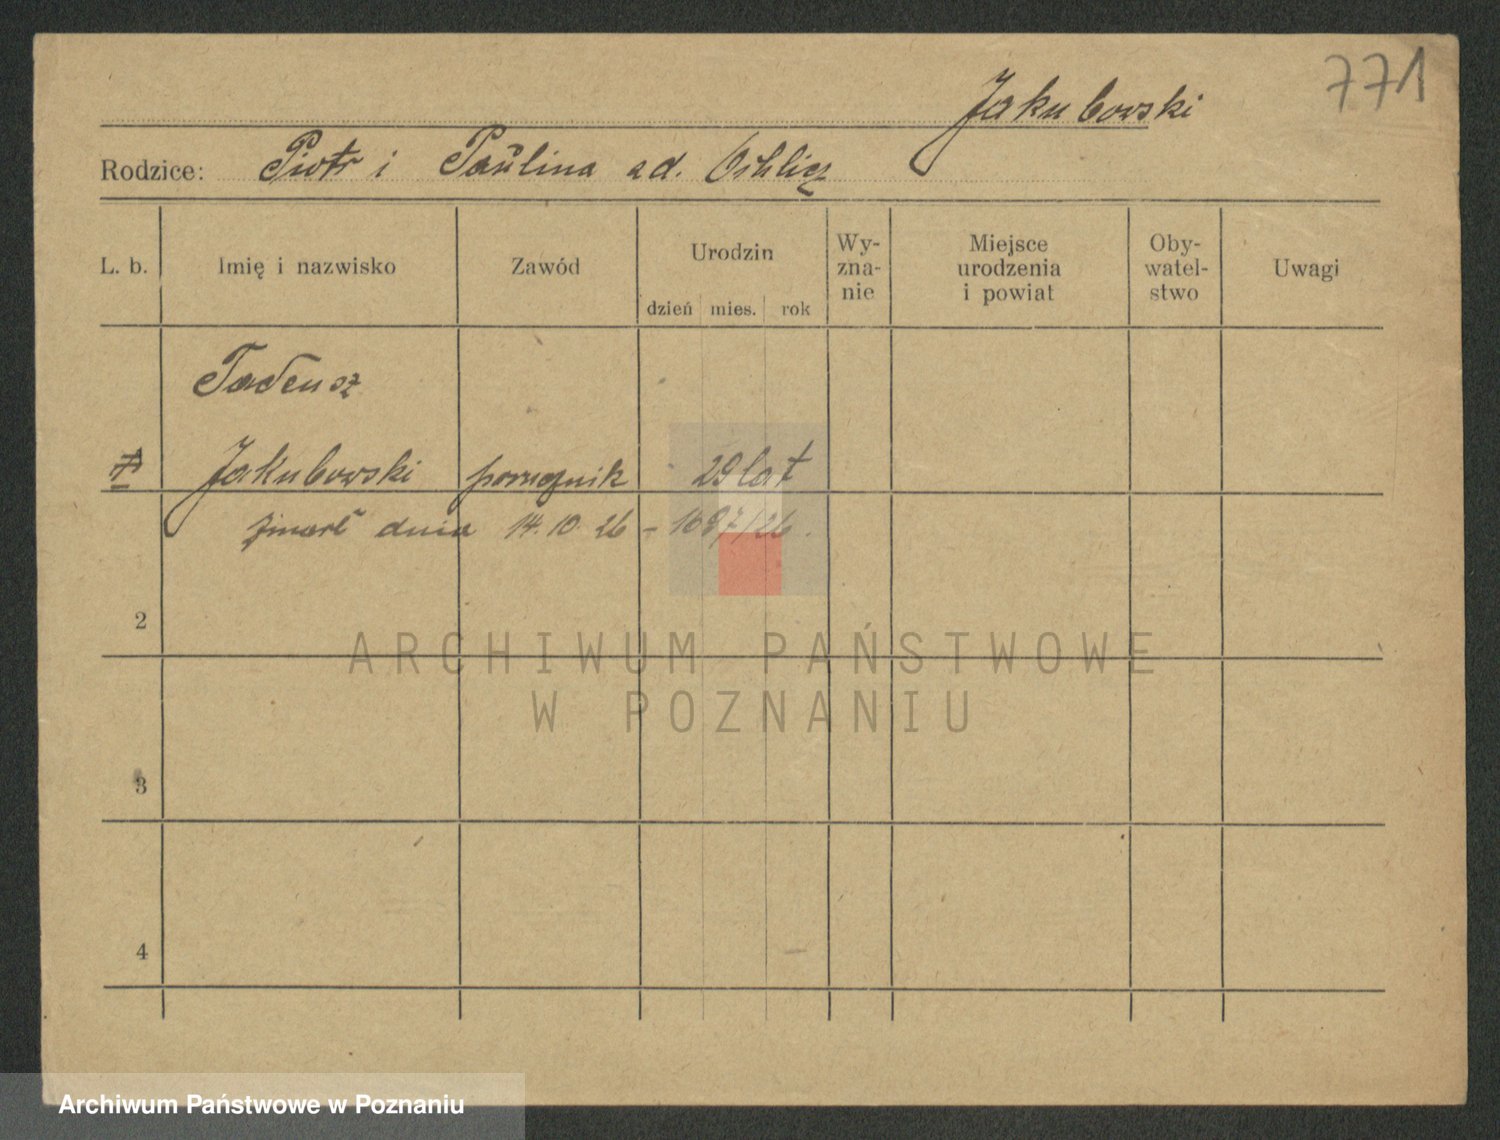 771
Jakubowski
Rodzice: Piotr i Paulina zd.
L. b. Imię i nazwisko Zawód Urodzin dzień mies. rok Wy-zna-nie Miejsce urodzenia i powiat Oby-watel-stwo Uwagi
Tadeusz
Jakubowski porucznik 29 lat
zmarł dnia 14.10.26 - 1687/26.
2
ARCHIWUM PAŃSTWOWE
W POZNANIU
3
4
Archiwum Państwowe w Poznaniu